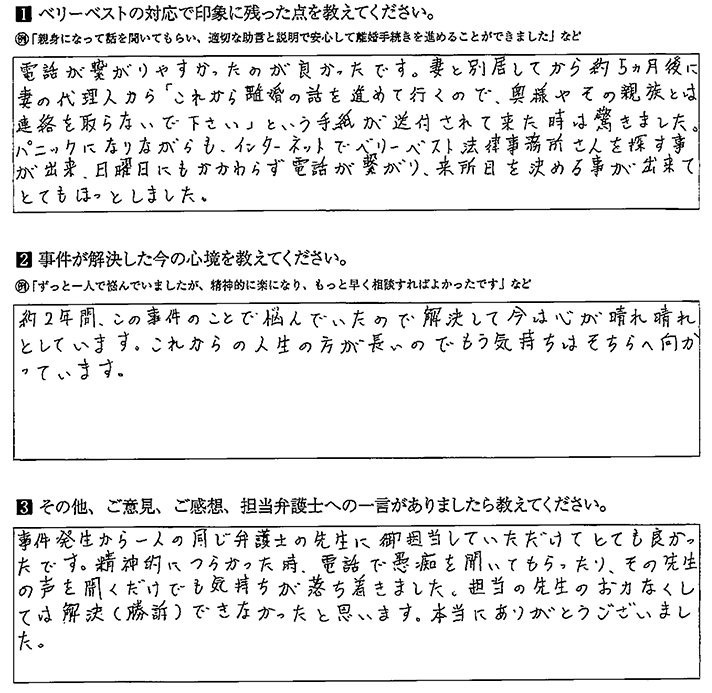 1 ベリーベストの対応で印象に残った点を教えてください。
例「親身になって話を聞いてもらい、適切な助言と説明で安心して離婚手続きを進めることができました」など
電話が繋がりやすかったのが良かったです。妻と別居してから約5ヵ月後に
妻の代理人から「これから離婚の話を進めて行くので、奥様やその親族とは
連絡を取らないで下さい」という手紙が送付されて来た時は驚きました。
パニックになりながらも、インターネットでベリーベスト法律事務所さんを探す事
が出来、日曜日にもかかわらず電話が繋がり、来所日を決める事が出来て
とてもほっとしました。
2 事件が解決した今の心境を教えてください。
例「ずっと一人で悩んでいましたが、精神的に楽になり、もっと早く相談すればよかったです」など
約2年間、この事件のことで悩んでいたので解決して今は心が晴れ晴れ
としています。これからの人生の方が長いのでもう気持ちはそちらへ向か
っています。
3 その他、ご意見、ご感想、担当弁護士への一言がありましたら教えてください。
事件発生から一人の同じ弁護士の先生に御担当していただけてとても良かっ
たです。精神的につらかった時、電話で愚痴を聞いてもらったり、その先生
の声を聞くだけでも気持ちが落ち着きました。担当の先生のお力なくし
ては解決(勝訴)できなかったと思います。本当にありがとうございまし
た。